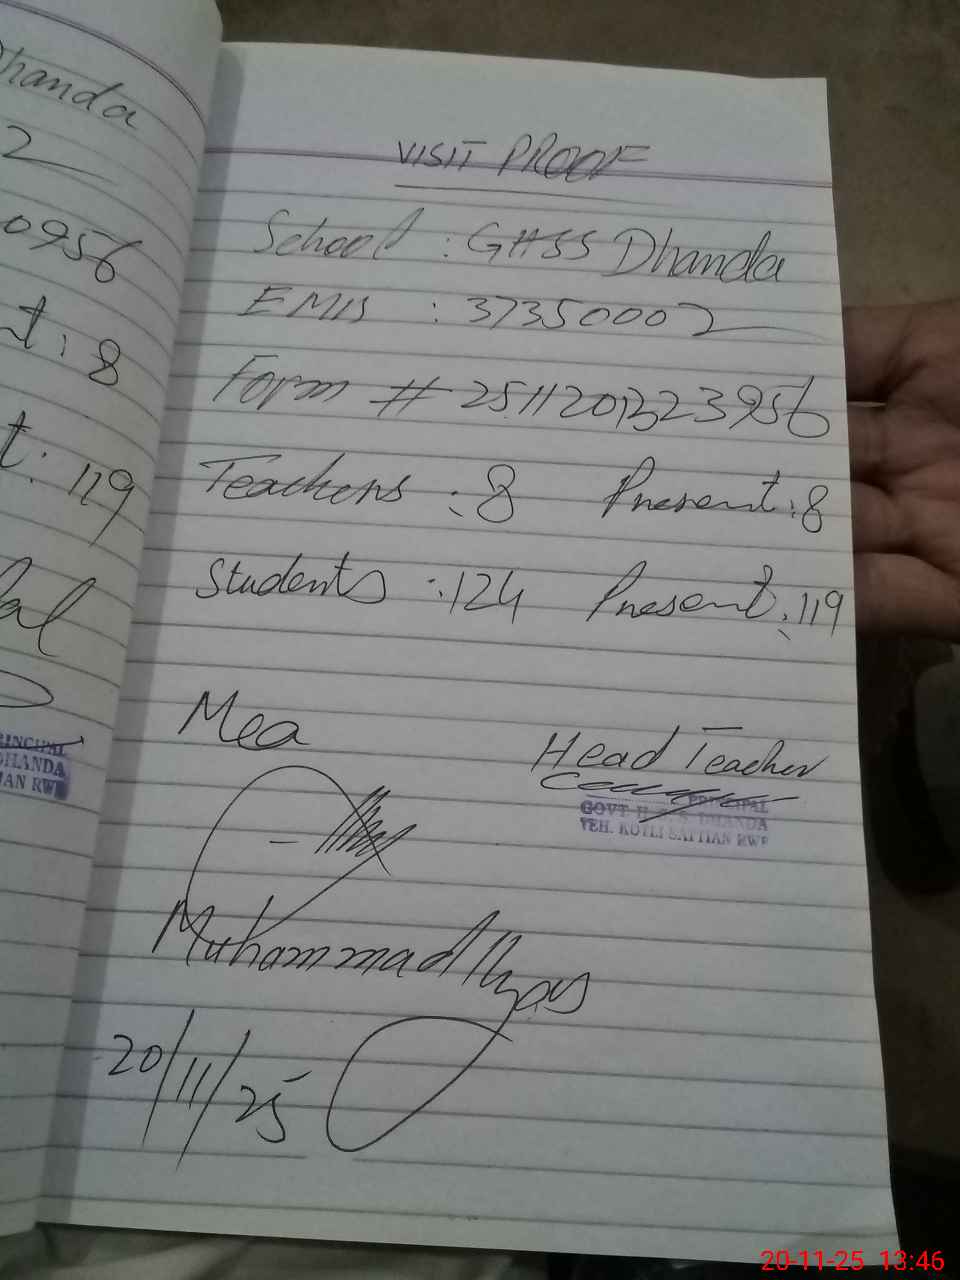 Dhanda
2
0956
nt: 8
t: 119
VISIT PROOF
School : GHSS Dhanda
EMIS : 37350002
Form # 2511201323956
Teachers : 8 Present: 8
Students : 124 Present: 119
Mea
Head Teacher
PRINCIPAL
GOVT H.S.S. DHANDA
TEH. KOTLI SATTIAN RWP
Muhammad Ilyas
20/11/25
PRINCIPAL
DHANDA
IAN RWP
20-11-25 13:46